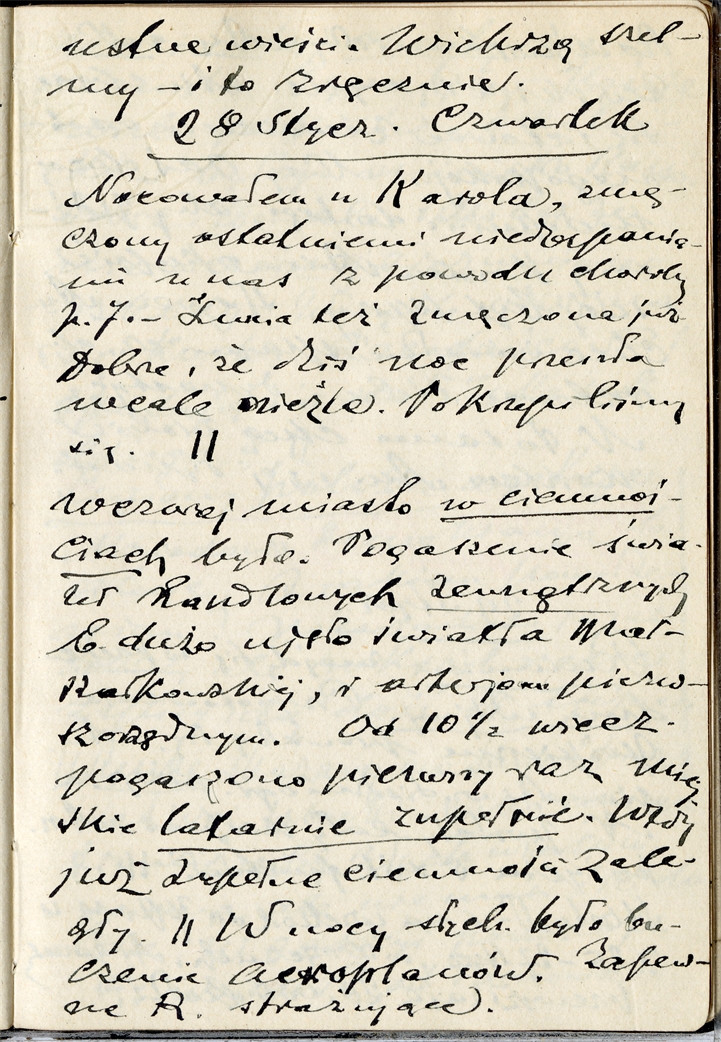 ustne wieści. Wichrzą szel-
my – i to zręcznie.
28 Stycz. Czwartek
Nocowałem u Karola, zmę-
czony ostatniemi niedospania-
mi u nas z powodu choroby
p. J. – Żunia też zmęczona już
Dobrze, że dziś noc przeszła
wcale nieźle. Pokrzepiliśmy
się. ||
wczoraj miasto w ciemnoś-
ciach było. Pogaszenie świa-
teł handlowych zewnętrznych
B. dużo ujęło światła Mar-
szałkowskiej, i arterjom pierw-
szorzędnym. Od 10½ wiecz.
pogaszono pierwszy raz miej
skie latarnie zupełnie. Wtedy
już zupełne ciemności zale-
gły. || W nocy słych. było bu-
czenie aeroplanów. Zapew-
ne R. strażujące).